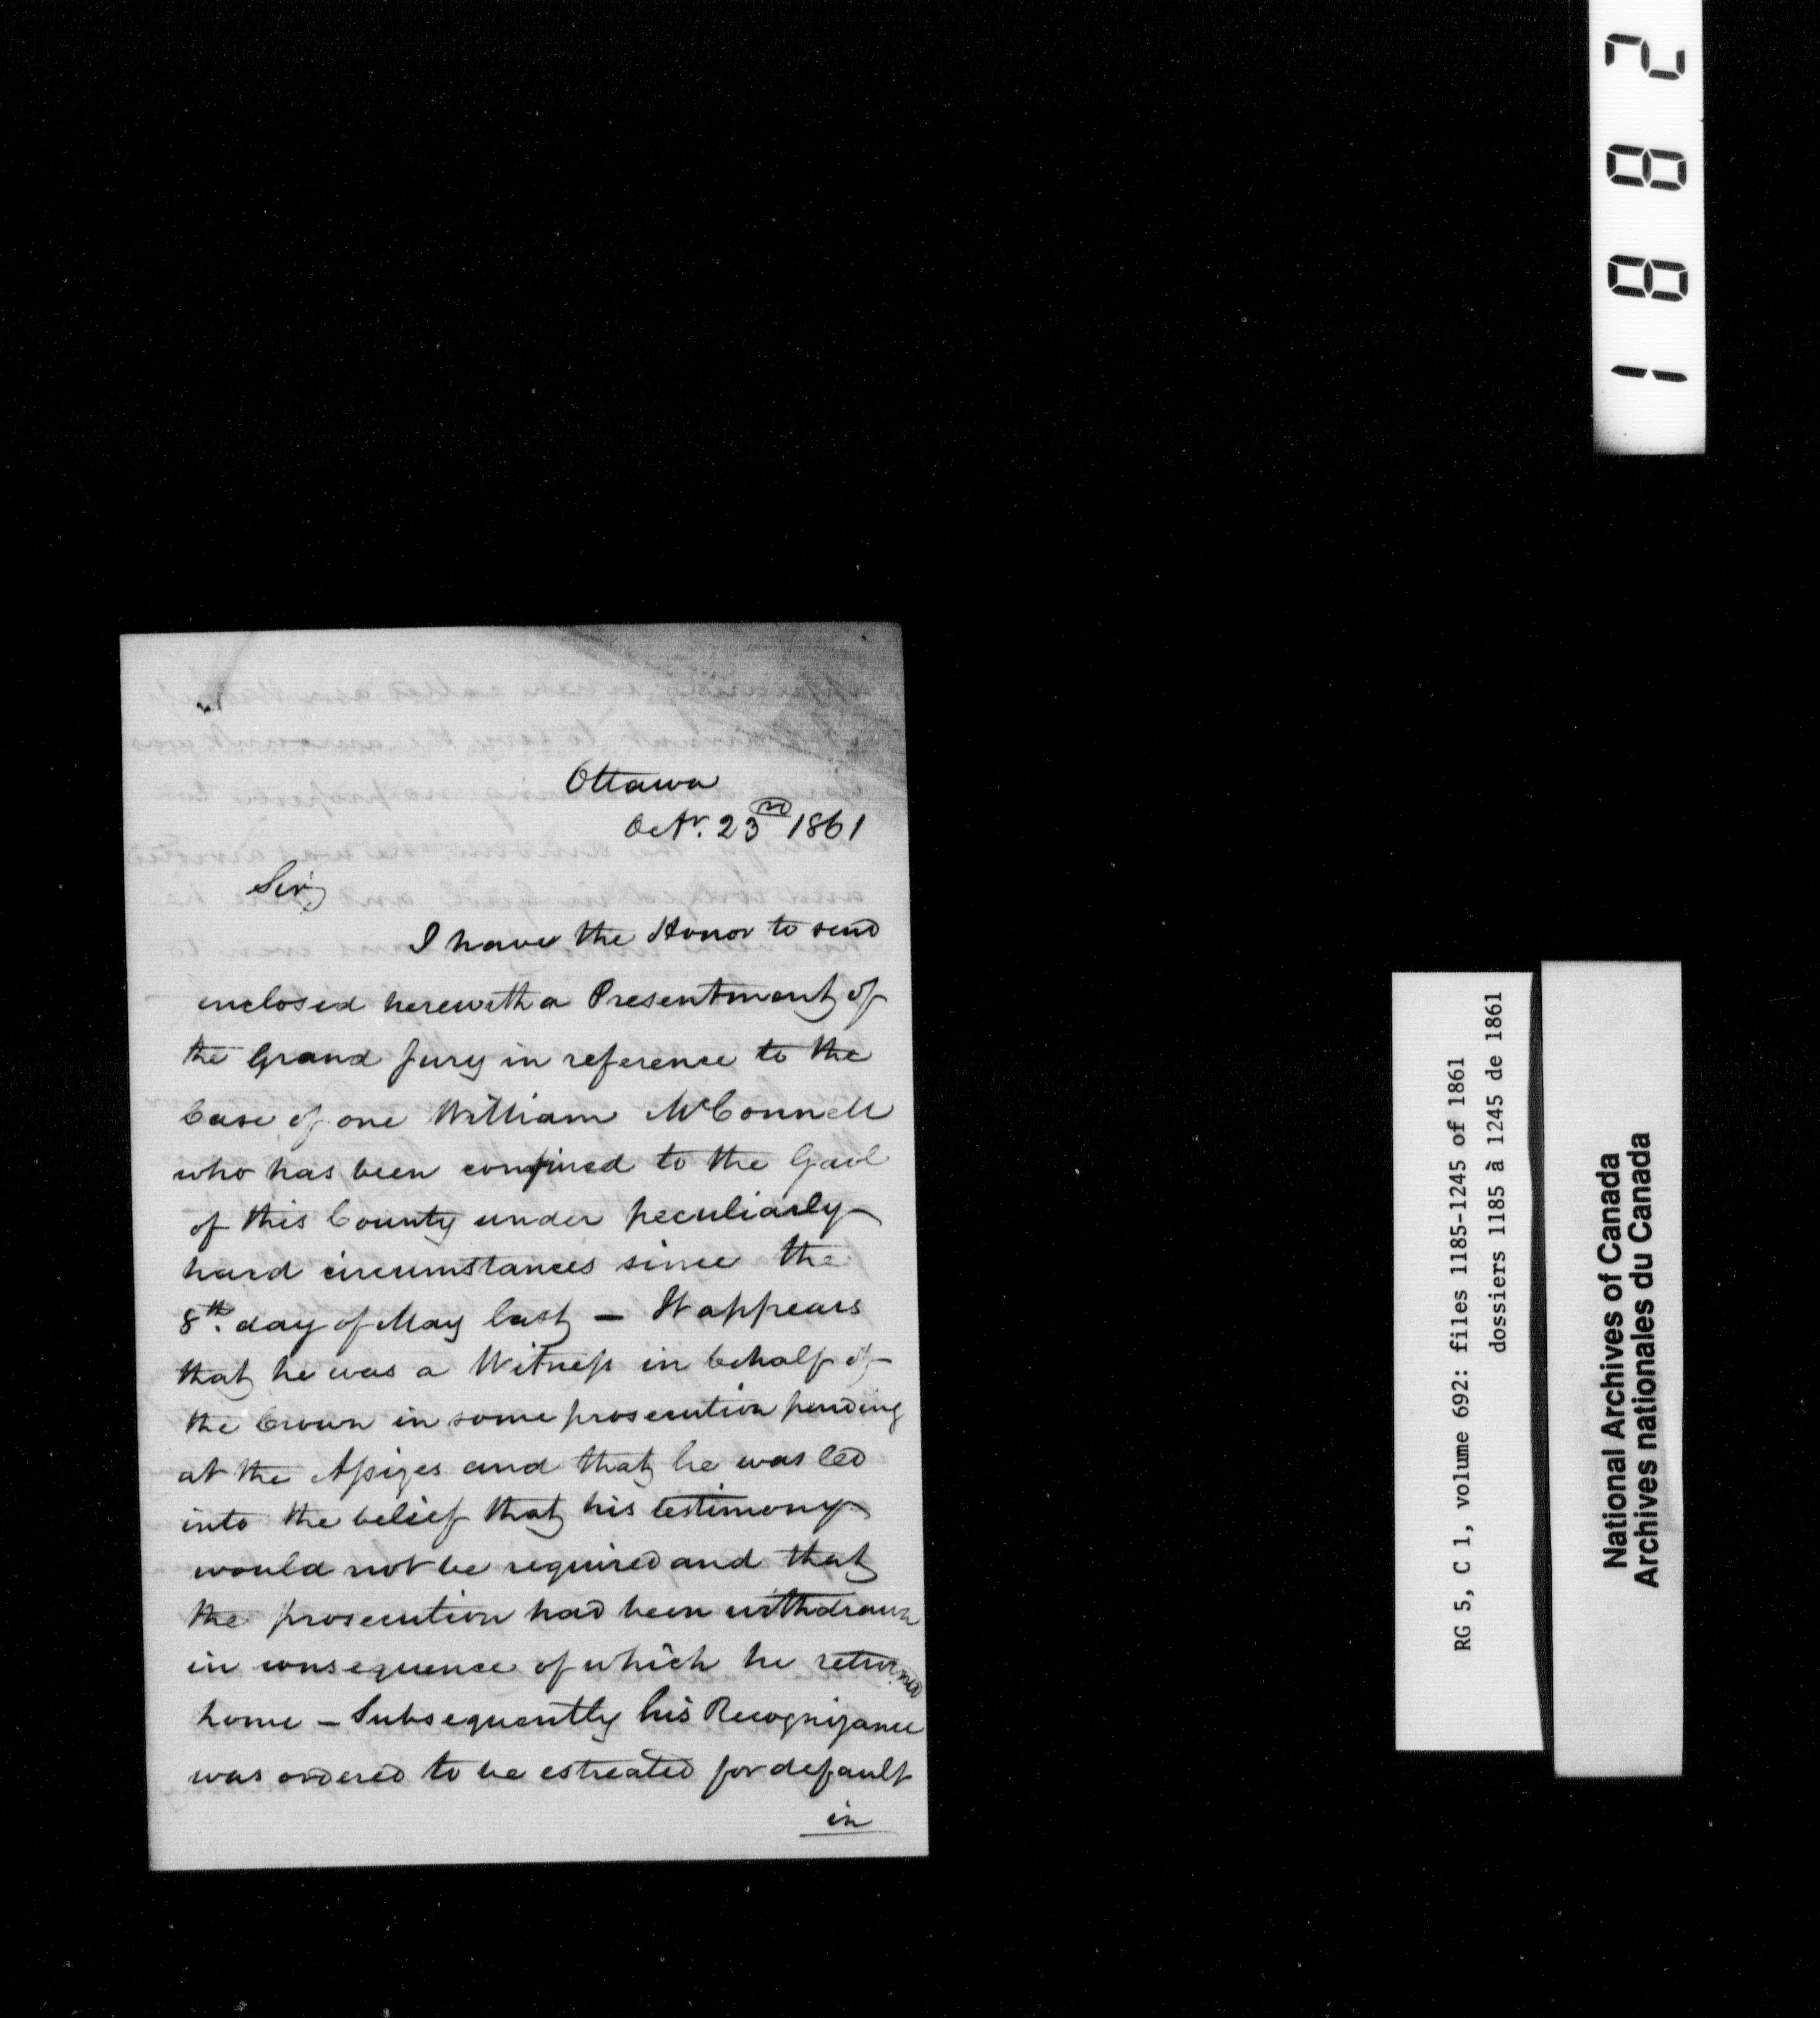 Ottawa
Octr. 23rd 1861
Sir,
I have the Honor to send
enclosed herewith a Presentment of
the Grand Jury in reference to the
Case of one William McConnell
who has been confined to the Gaol
of this County under peculiarly
hard circumstances since the
8th. day of May last — It appears
that he was a Witness in behalf of
the Crown in some prosecution pending
at the Assizes and that he was led
into the belief that his testimony
would not be required and that
the prosecution had been withdrawn
in consequence of which he returned
home — Subsequently his Recognizance
was ordered to be estreated for default
in
1882
RG 5, C 1, volume 692: files 1185-1245 of 1861
dossiers 1185 à 1245 de 1861
National Archives of Canada
Archives nationales du Canada